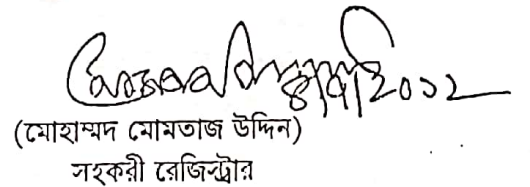 ২০১২
(মোহাম্মদ মোমতাজ উদ্দিন)
সহকরী রেজিস্ট্রার